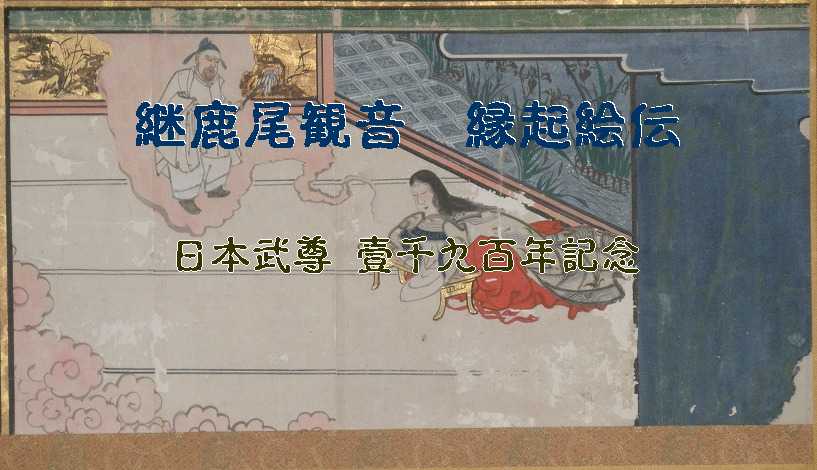 継鹿尾観音 縁起絵伝
日本武尊 壹千九百年記念